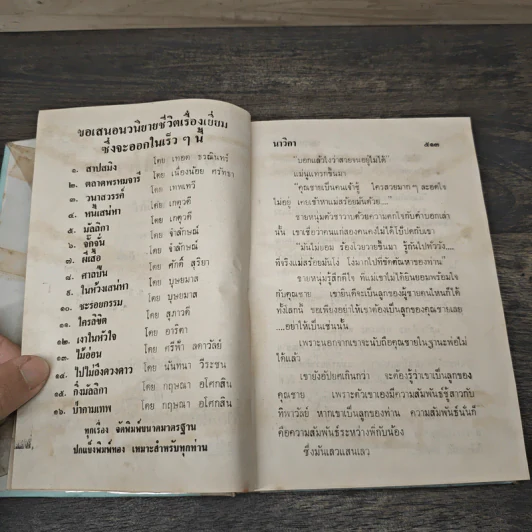 ขอเสนอนวนิยายชีวิตเรื่องเยี่ยม
ซึ่งจะออกในเร็ว ๆ นี้
๑. สาปสมิง โดย เทอด ธวณินทร์
๒. ตลาดพรหมจารี โดย เนื่องน้อย ศรัทธา
๓. วนาสวรรค์ โดย เทพเทวี
๔. หนี้เสน่หา โดย เกตุวดี
๕. มัลลิกา โดย เกตุวดี
๖. จักจั่น โดย จำลักษณ์
๗. ผีเสื้อ โดย จำลักษณ์
๘. ศาลปืน โดย ศักดิ์ สุริยา
๙. ในห้วงเสน่หา โดย บุษยมาส
๑๐. ชะรอยกรรม โดย บุษยมาส
๑๑. ใครลิขิต โดย สุภาวดี
๑๒. เงาในหัวใจ โดย อาริตา
๑๓. ไม้อ่อน โดย ศรีฟ้า ลดาวัลย์
๑๔. ไปไม่ถึงดวงดาว โดย นันทนา วีระชน
๑๕. กิ่งมัลลิกา โดย กฤษณา อโศกสิน
๑๖. น้ำกามเทพ โดย กฤษณา อโศกสิน
ทุกเรื่อง จัดพิมพ์ขนาดมาตรฐาน
ปกแข็งพิมพ์ทอง เหมาะสำหรับทุกท่าน
นาวิกา ๕๑๓
“บอกแล้วไงว่าสายจนอยู่ไม่ได้”
แม่นแทรกขึ้นมา
“คุณชายเป็นคนเจ้าชู้ ใครสวยมากๆ ละอดใจ
ไม่อยู่ เคยเข้าหาแม่สร้อยมันด้วย....”
ชายหนุ่มตัวชาวาบด้วยความตกใจกับคำบอกเล่า
นั้น เขาเชื่อว่าคนแก่สองคนคงไม่ได้โป้ปดกับเขา
“มันไม่ยอม ร้องโวยวายขึ้นมา รู้กันไปทั่ววัง....
ที่จริงแม่สร้อยมันโง่ โง่มากไปที่ขัดตัณหาของท่าน”
ชายหนุ่มรู้สึกดีใจ ที่แม่เขาไม่ได้ยินยอมพร้อมใจ
กับคุณชาย เขายินดีจะเป็นลูกของผู้ชายคนไหนก็ได้
ทั้งโลกนี้ ขอเพียงอย่าให้เขาต้องเป็นลูกของคุณชายเลย
....อย่าให้เป็นเช่นนั้น
เพราะนอกจากเขาจะนับถือคุณชายในฐานะพ่อไม่
ได้แล้ว
เขายังอัปยศเกินกว่า จะต้องรู้ว่าเขาเป็นลูกของ
คุณชาย เพราะตัวเขาเองมีความสัมพันธ์ชู้สาวกับ
ทิพาวัลย์ หากเขาเป็นลูกของท่าน ความสัมพันธ์นั้นก็
คือความสัมพันธ์ระหว่างพี่กับน้อง
ซึ่งมันเลวแสนเลว